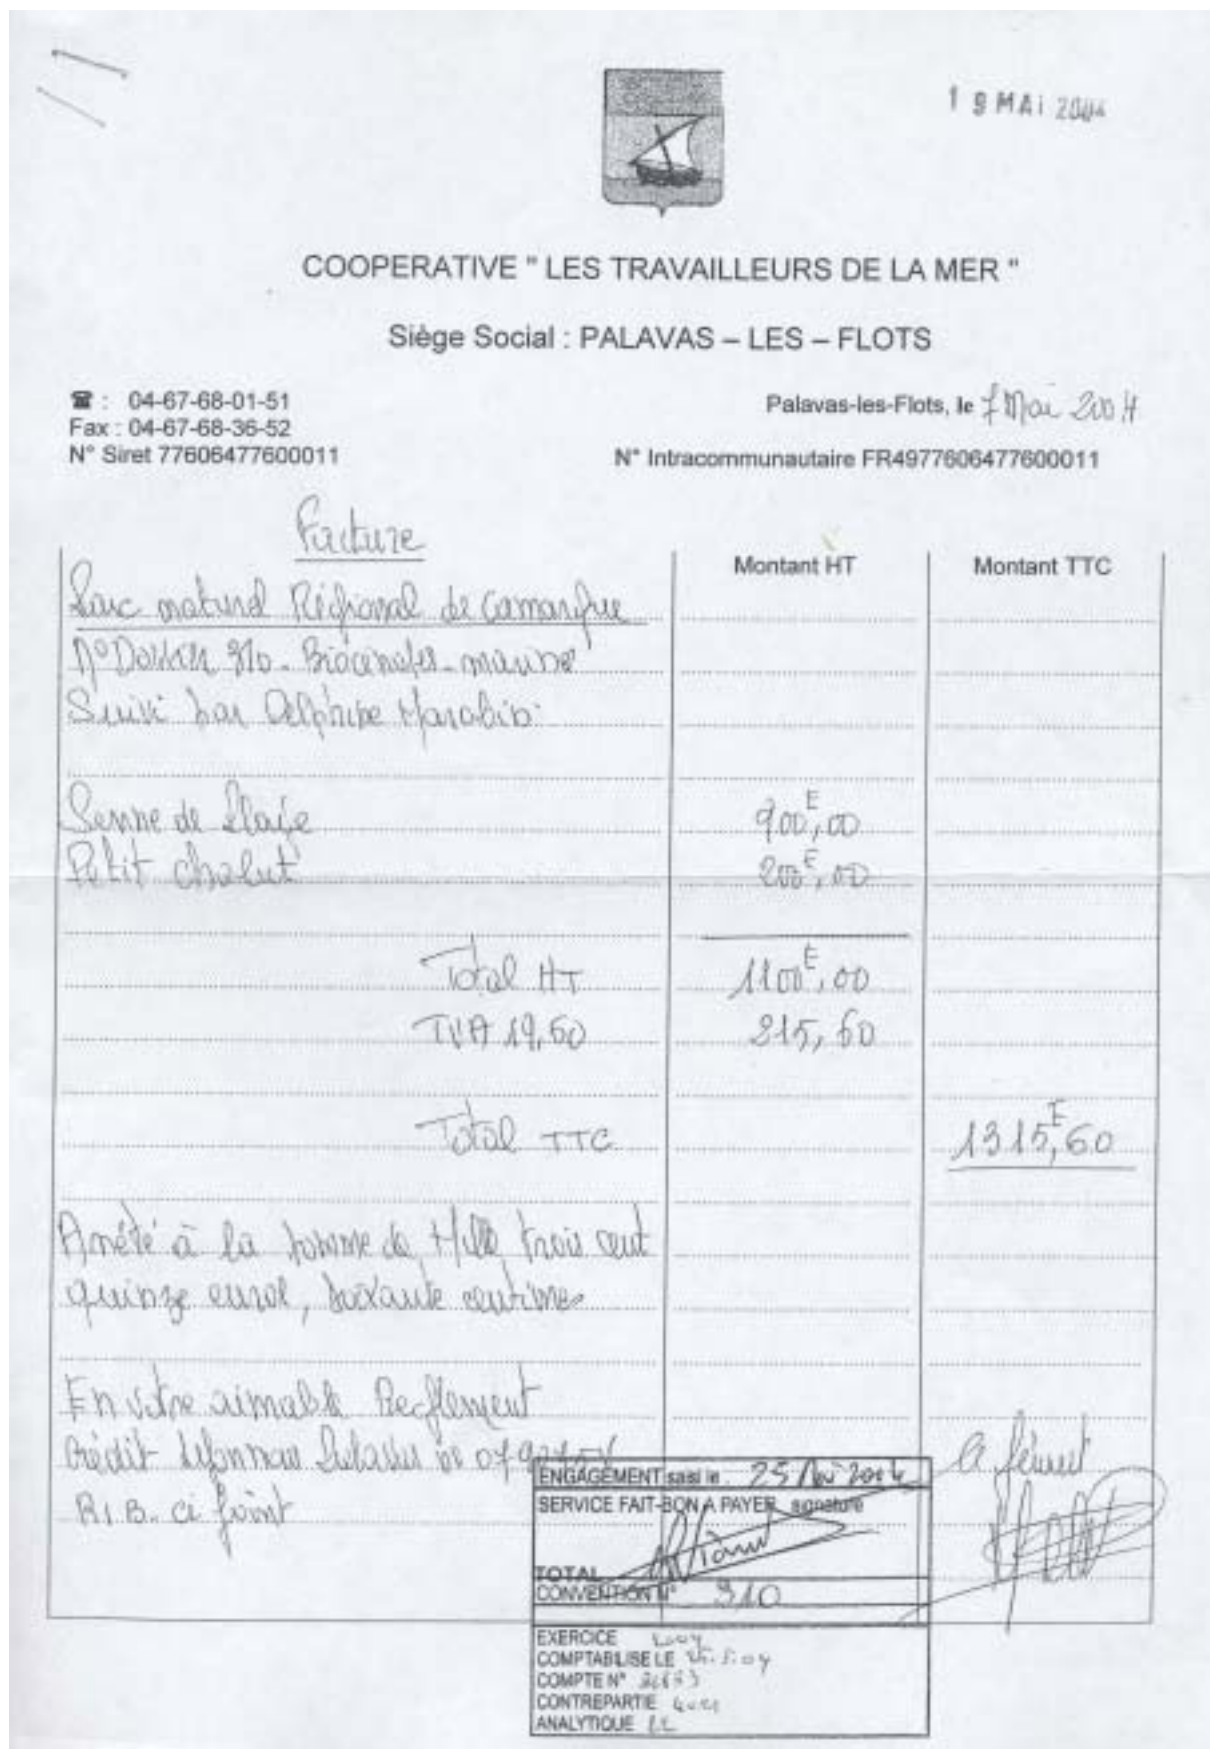 19 MAI 2004
COOPERATIVE " LES TRAVAILLEURS DE LA MER "
Siège Social : PALAVAS – LES – FLOTS
☎ : 04-67-68-01-51
Palavas-les-Flots, le 7 Mai 2004
Fax : 04-67-68-36-52
N° Siret 77606477600011
N° Intracommunautaire FR4977606477600011
Facture
Montant HT
Montant TTC
Parc naturel Régional de Camargue
N° Dossier 310 - marine
Suivi par Delphine Marobin
Senne de Plage 900E,00
Petit chalut 200E,00
Total HT 1100E,00
TVA 19,60 215,60
Total TTC 1315E,60
Arrêté à la somme de Mille trois cent
quinze euros, soixante centimes
En votre aimable Reglement
Crédit
R.I.B. ci joint
ENGAGEMENT saisi le : 25 2004
SERVICE FAIT-BON A PAYER signature
TOTAL
CONVENTION N° 310
EXERCICE 2004
COMPTABILISE LE 25.5.04
COMPTE N°
CONTREPARTIE
ANALYTIQUE